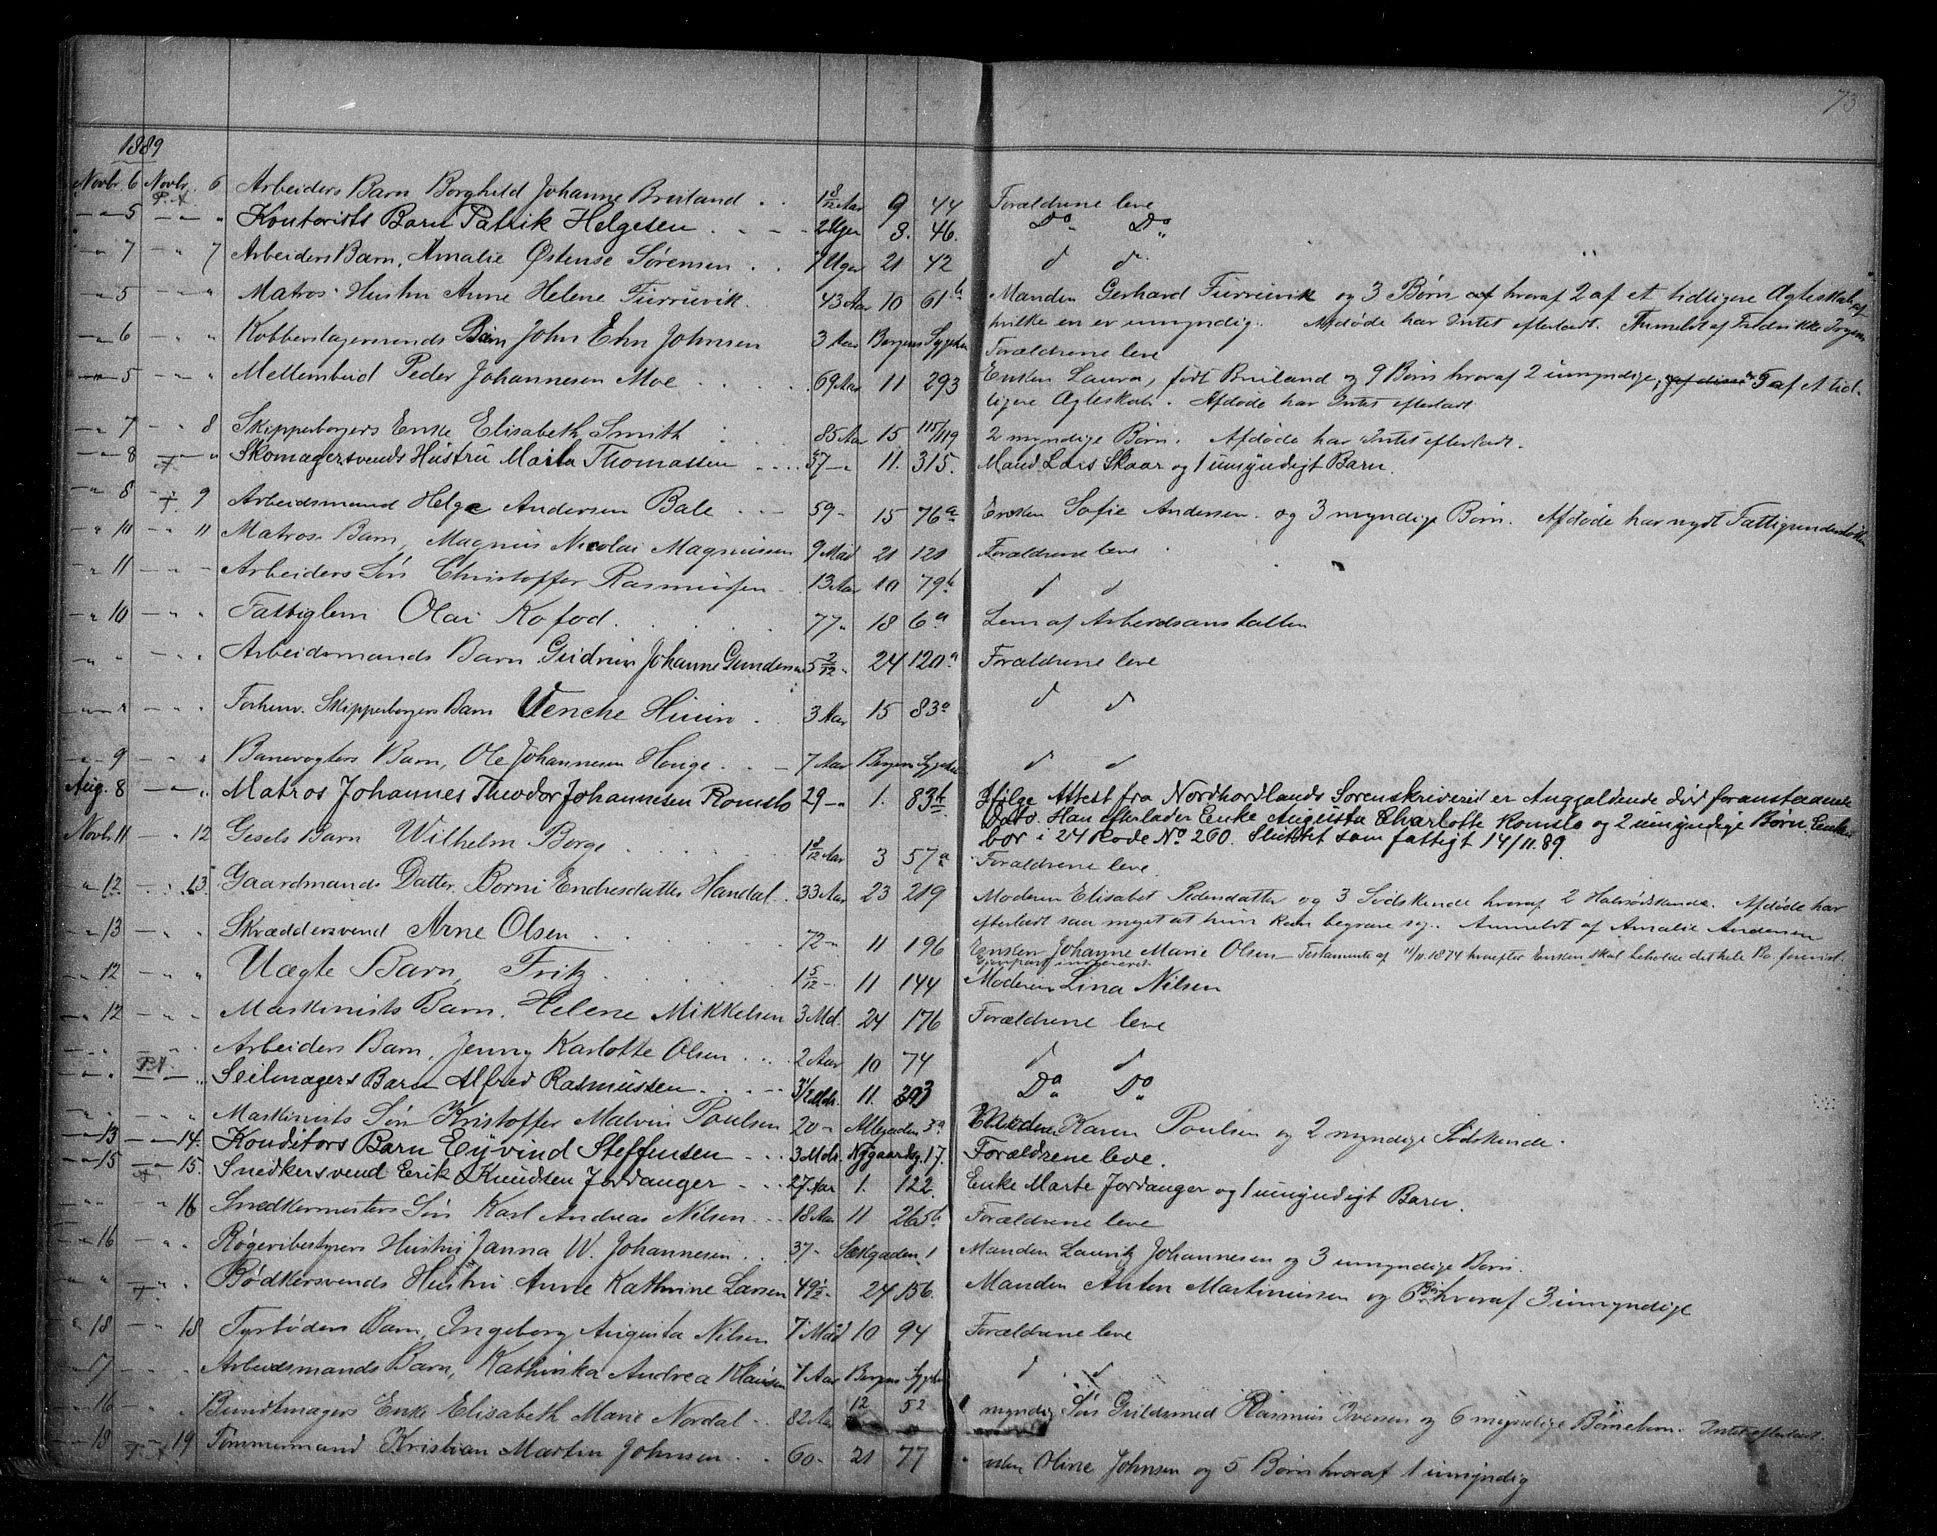 73
1889
Novbr. 6 Novbr. 6 Arbeiders Barn Borghild Johanne Breiland . . 1 8/12 Aar 9 44 Forældrene leve
P. A
" 5 " " Kontorists Barn Patrik Helgesen . . . 2 Uger 8. 46. Do Do
" 7 " 7 Arbeiders Barn, Amalie Østense Sørensen . . 7 Uger 21 42 d d
" 5 " " Matros Hustru Anne Helene Furruvik. 43 Aar 10 61 b Manden Gerhard Furruvik og 3 Børn af hvoraf 2 af et tidligere Ægteskab af
hvilke en er umyndig. Afdøde har Intet efterladt. Anmeldt af Fredrikke
" 6 " " Kobberslagersvends Barn John Ehn Johnsen 3 Aar Bergens Sygehus Forældrene leve
" 5 " " Mellembud Peder Johannesen Moe . . . 69 Aar 11 293 Enken Laura, født Breiland og 9 Børn hvoraf 2 umyndige, og af disse 5 af et tid-
ligere Ægteskab. Afdøde har Intet efterladt
" 7 " 8 Skipperborgers Enke Elisabeth Smith . . 85 Aar 15 115/119 2 myndige Børn. Afdøde har Intet efterladt.
" 8 A " Skomagersvends Hustru Maila Thomassen . . . 37 " 11. 315. Mand Lars Skaar og 1 umyndigt Barn.
" 8 A 9 Arbeidsmand Helge Andersen Bale . . . 59 " 15 76 a Enken Sofie Andersen. og 3 myndige Børn. Afdøde har nydt Fattigunderstøttelse
" 10 " 11 Matros Barn, Magnus Nicolai Magnussen 9 Mdr 21 121 Forældrene leve
" 11 " " Arbeiders Søn Christoffer Rasmussen . 13 Aar 10 79 b d d
" 10 " " Fattiglem Olai Kofod . . . 77 " 18 6 a Lem af Arbeidsanstalten
" " " " Arbeidsmands Barn Gudrun Johanne Gundersen 5 2/12 " 24 120 a Forældrene leve
" " " " Forhenv. Skipperborgers Barn Venche . 3 Aar 15 83 a d d
" 9 " " Banevogters Barn, Ole Johannesen Houge . . 7 Aar Bergens Sygehus d d
Aug. 8 " " Matros Johannes Theodor Johannesen Romslo 29 " 1. 83 b. Ifølge Attest fra Nordhordlands Sorenskriveri er Angjældende død foranstaaende
Dato. Han efterlader Enke Augusta Charlotte Romslo og 2 umyndige Børn. Enken
bor i 24 Rode No 260. Sluttet som fattigt 14/11.89.
Novbr. 11 " 12 Gesels Barn Wilhelm Borge . . . 1 8/12 Aar 3 57 a Forældrene leve.
" 12 " 13. Gaardmands Datter, Borni Endresdatter Handal . 33 Aar 23 219 Moderen Elisabet Pedersdatter og 3 Sødskende hvoraf 2 Halvsødskende. Afdøde har
efterladt saa meget at hun kan begrave sig. Anmeldt af Amalie Andersen
" 13 " " Skræddersvend Arne Olsen . . . 72 " 11 196 Enken Johanne Marie Olsen - Testamente af 11/11.1874 hvorefter Enken skal beholde det hele Bo
" 12 " " Uægte Barn, Fritz . . . 1 5/12 " 11 144 Moderen Lina Nilsen
" 12 " " Maskinists Barn, Helene Mikkelsen 3 Md. 24 176 Forældrene leve
" " " " Arbeiders Barn, Jenny Karlotte Olsen . . 2 Aar 10 74 d d
" " P.A. " Seilmagers Barn Alfred Rasmussen . . . 3 1/2 Mdr. 11. 393 Do Do
" " " " Maskinists Søn Kristoffer Malvin Poulsen 20 " Allegaden 3 a Moderen Karen Poulsen og 2 myndige Sødskende.
" 13 " 14. Konditors Barn Eyvind Steffensen . . . 3 Mdr. Nygaardsg. 17. Forældrene leve.
" 15 A 15. Snedkersvend Erik Knudsen Jordanger . . . 27 Aar 1. 122. Enke Marte Jordanger og 1 umyndigt Barn.
" " " 16 Snedkermesters Søn Karl Andreas Nilsen . . . 18 Aar 11 265 b Forældrene leve
" 16 " " Røgeribestyrers Hustru Janna W. Johannesen . . 37 " 1 Manden Lauritz Johannesen og 3 umyndige Børn.
" " A " Bødkersvends Hustru Anne Kathrine Larsen 49 1/2 " 24 156. Manden Anton Martinussen og 6 Børn hvoraf 3 umyndige
" 18 " 18 Fyrbøders Barn, Ingeborg Augusta Nilsen 7 Mdr 10 94 Forældrene leve
" 17 " " Arbeidsmands Barn, Kathinka Andrea Klausen 4 Aar Bergens Sygehus d d
" 16 " " Buntmagers Enke Elisabeth Marie Nordal . . 82 Aar 12 52 1 myndig Søn Guldsmed Rasmus Iversen og 6 myndige Børnebørn. Intet efterladt.
" 18 F. A 19 Tømmermand Kristian Martin Johnsen . . 60 " 21 77 Oline Johnsen og 5 Børn hvoraf 1 umyndig